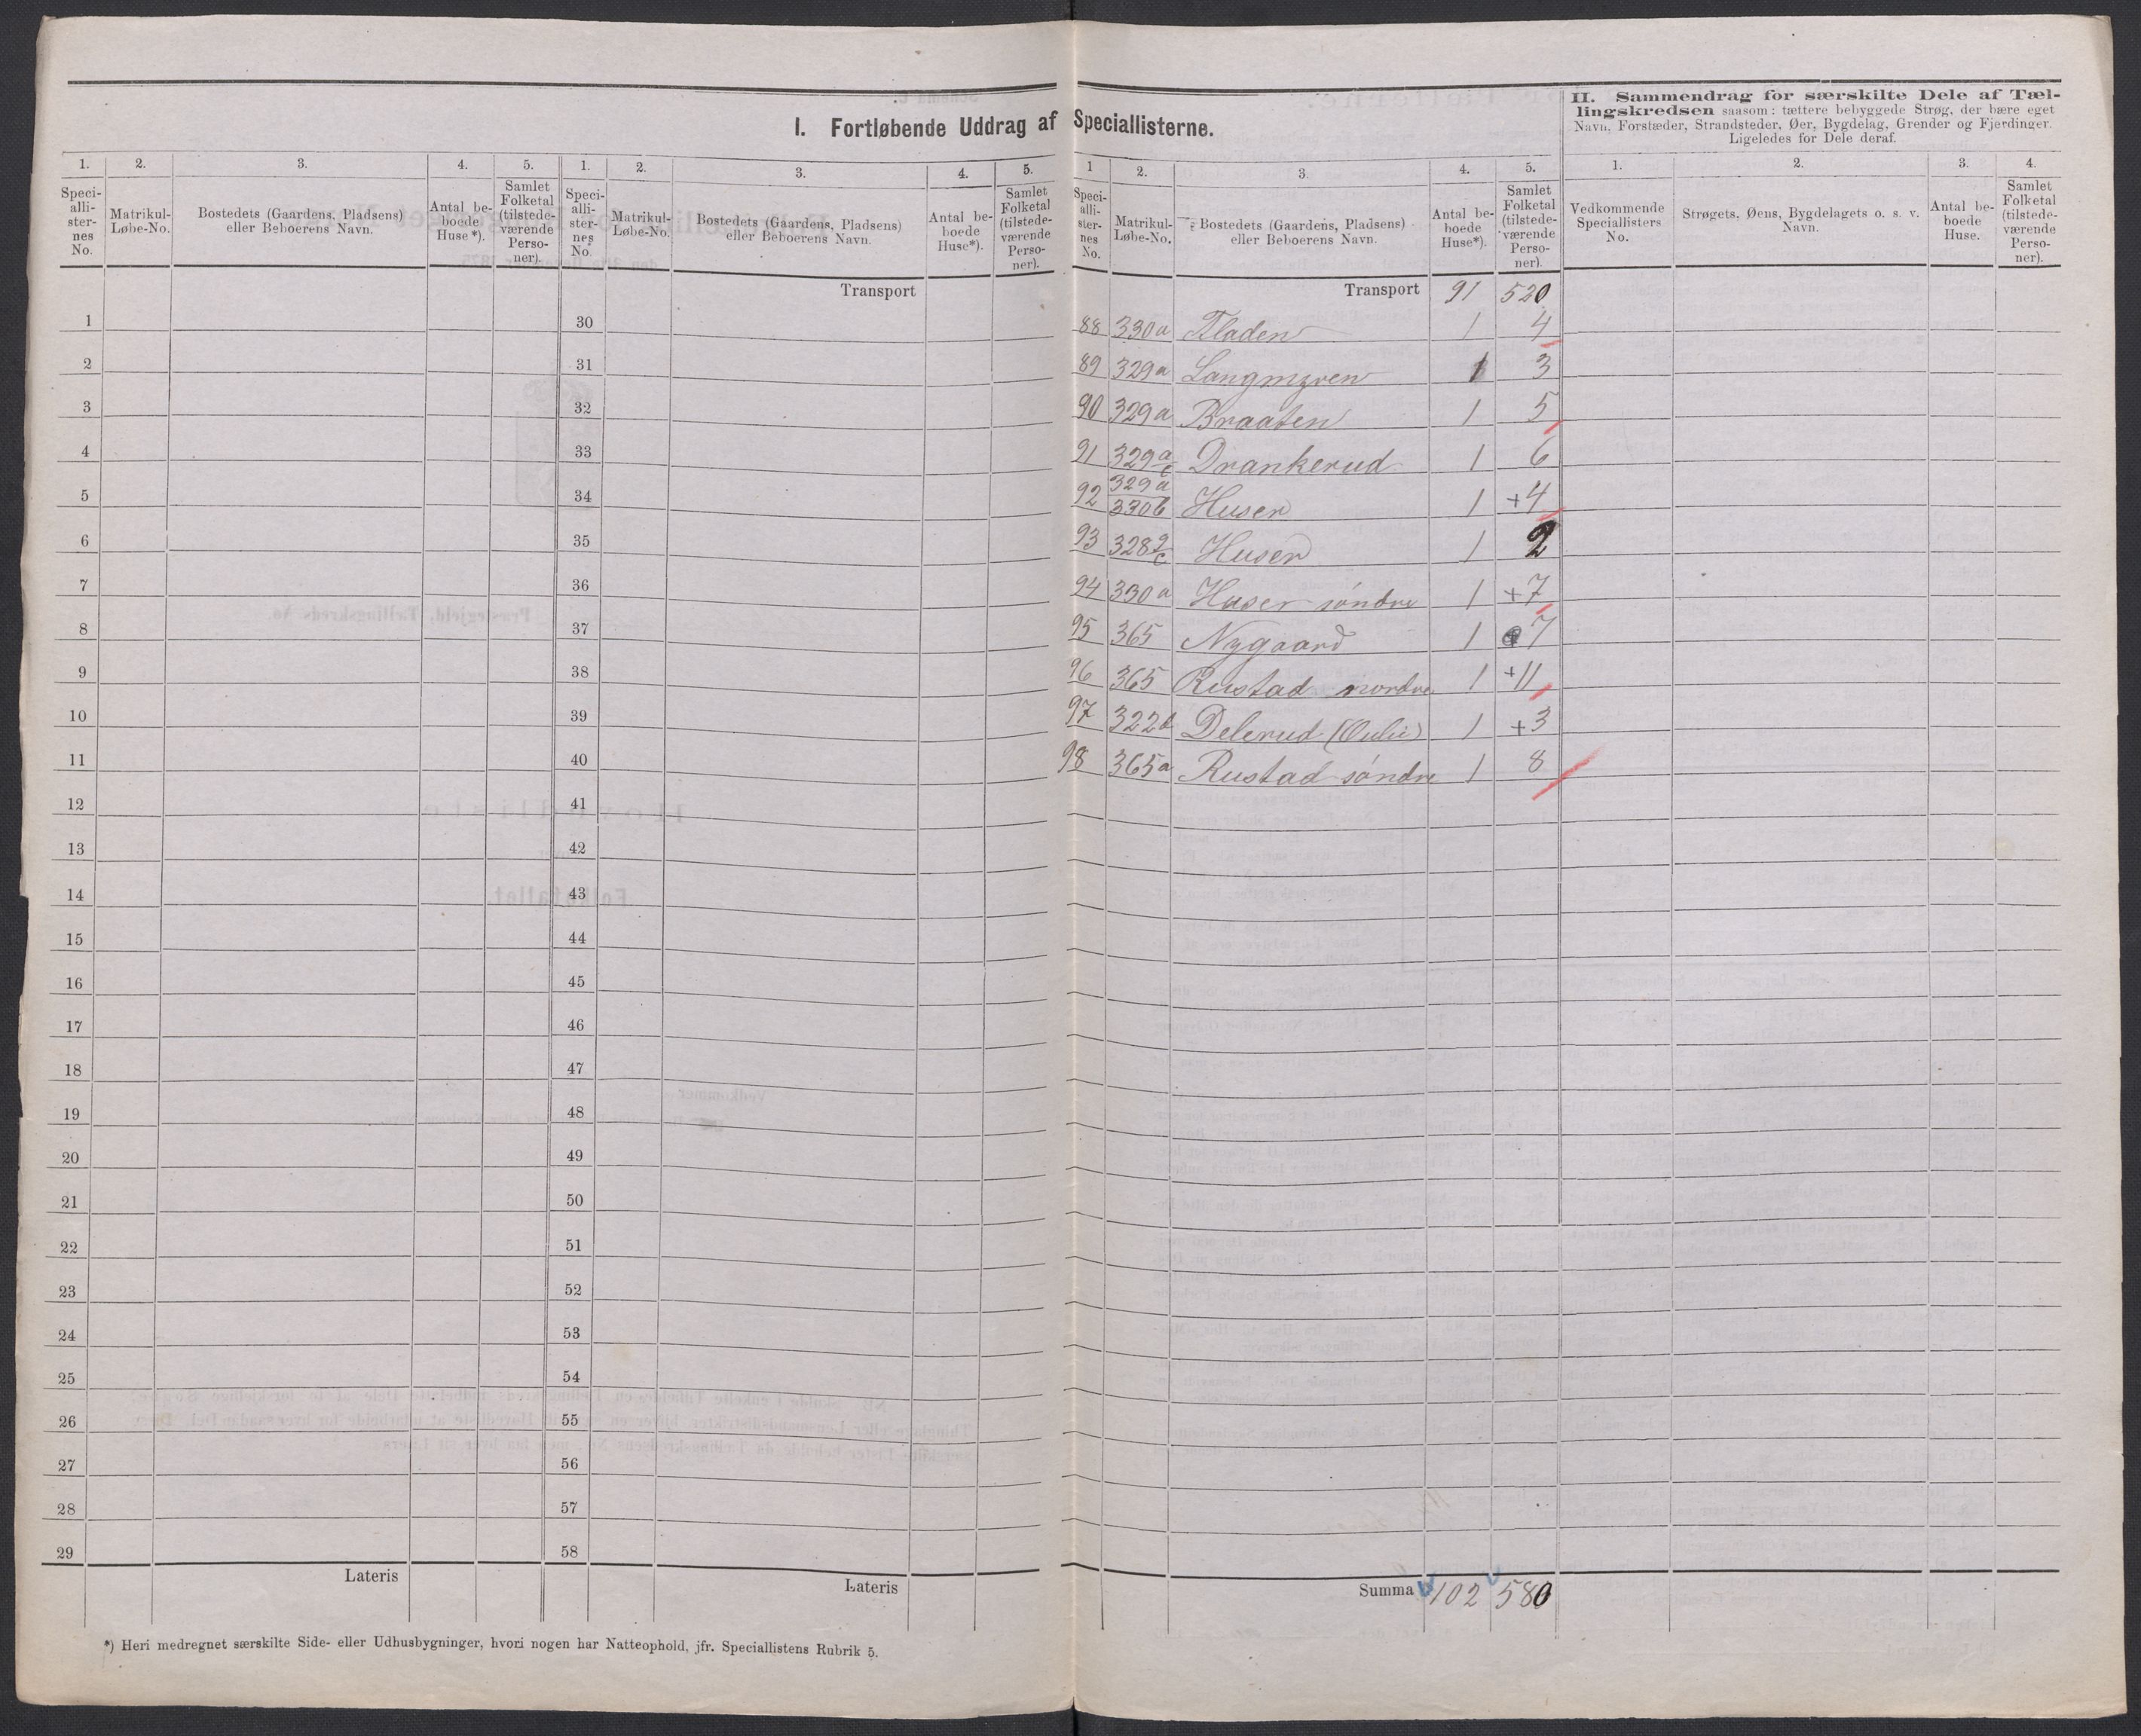 I. Fortløbende Uddrag af Speciallisterne.
II. Sammendrag for særskilte Dele af Tæl-
lingskredsen saasom: tættere bebyggede Strøg, der bære eget
Navn, Forstæder, Strandsteder, Øer, Bygdelag, Grender og Fjerdinger.
Ligeledes for Dele deraf.
1. 2. 3. 4. 5. 1. 2. 3. 4. 5.
Speci-
alli-
ster-
nes
No.
Matrikul-
Løbe-No.
Bostedets (Gaardens, Pladsens)
eller Beboerens Navn.
Antal be-
boede
Huse*).
Samlet
Folketal
(tilstede-
værende
Perso-
ner).
Speci-
alli-
ster-
nes
No.
Matrikul-
Løbe-No.
Bostedets (Gaardens, Pladsens)
eller Beboerens Navn.
Antal be-
boede
Huse*).
Samlet
Folketal
(tilstede-
værende
Perso-
ner).
Transport
1 30
2 31
3 32
4 33
5 34
6 35
7 36
8 37
9 38
10 39
11 40
12 41
13 42
14 43
15 44
16 45
17 46
18 47
19 48
20 49
21 50
22 51
23 52
24 53
25 54
26 55
27 56
28 57
29 58
Lateris Lateris
*) Heri medregnet særskilte Side- eller Udhusbygninger, hvori nogen har Natteophold, jfr. Speciallistens Rubrik 5.
1 2. 3. 4. 5.
Speci-
alli-
ster-
nes
No.
Matrikul-
Løbe-No.
Bostedets (Gaardens, Pladsens)
eller Beboerens Navn.
Antal be-
boede
Huse*).
Samlet
Folketal
(tilstede-
værende
Perso-
ner).
Transport 91 520
88 330a Fladen 1 4
89 329a Langmyren 1 3
90 329a Braaten 1 5
91 329a/c Drankerud 1 6
92 329a/330b Huser 1 +4
93 328 Huser 1 2
94 330a Huser söndre 1 +7
95 365 Nygaard 1 7
96 365 Rustad nordre 1 +11
97 322b Delerud 1 +3
98 365a Rustad söndre 1 8
Summa 102 580
1. 2. 3. 4.
Vedkommende
Speciallisters
No.
Strøgets, Øens, Bygdelagets o. s. v.
Navn.
Antal be-
boede
Huse.
Samlet
Folketal
(tilstede-
værende
Perso-
ner).